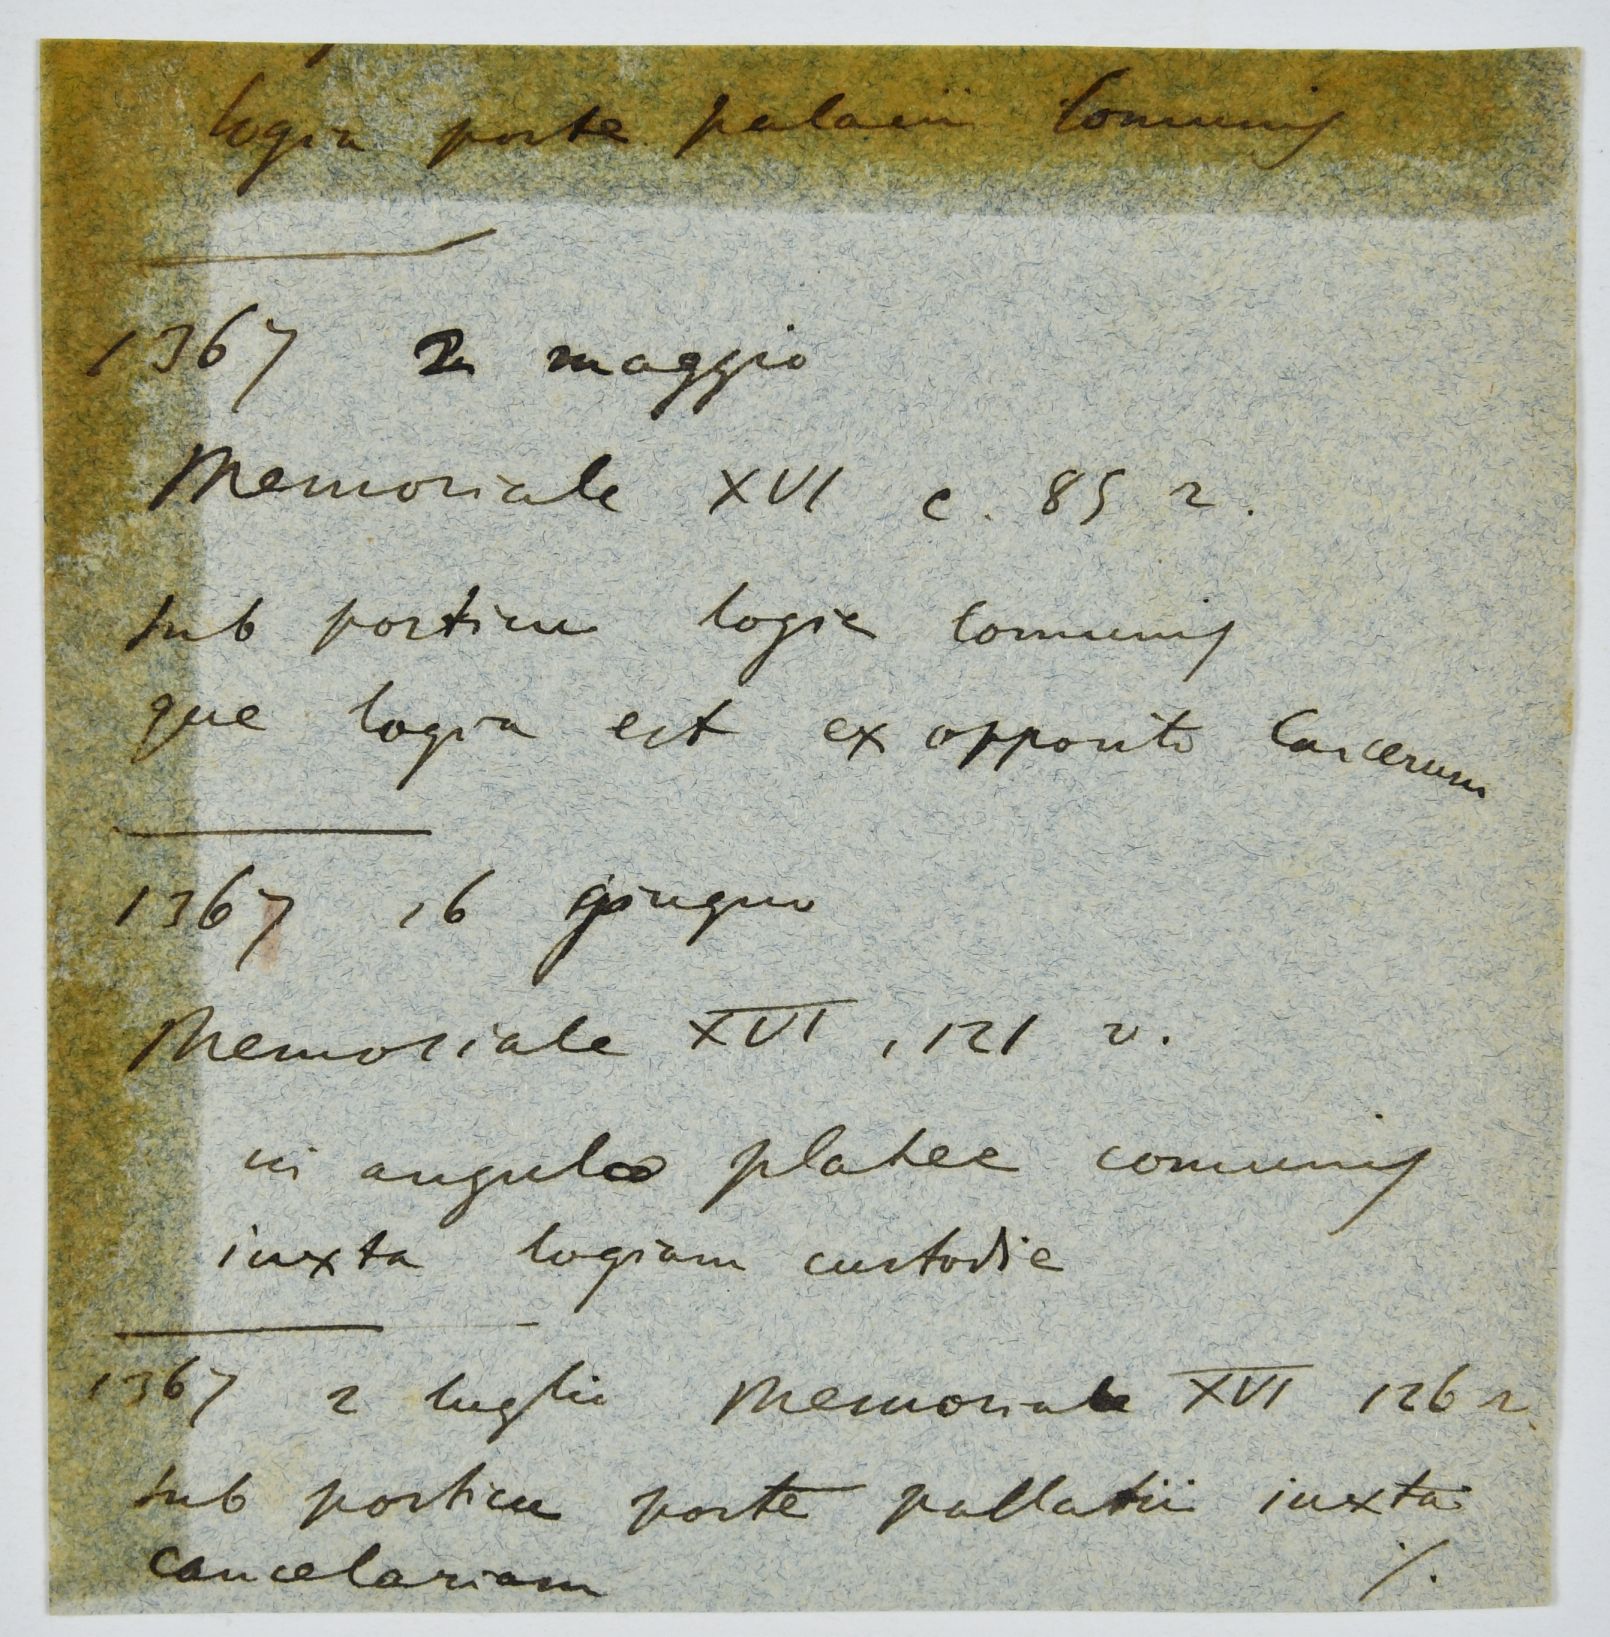 logia porte palacii Comunis
1367 2 maggio
Memoriale XVI c. 85 r.
sub porticu logie Comunis
que logia est ex opposito Carcerum
1367 16 giugno
Memoriale XVI, 121 v.
in angulo platee comunis
iuxta logiam custodie
1367 2 luglio Memoriale XVI 126 r.
sub porticu porte pallatii iuxta
cancelariam ./.